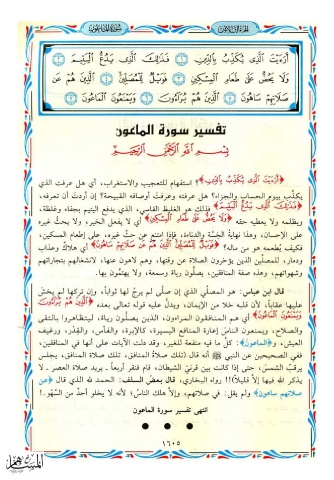 سورة الماعون
أَرَءَيْتَ الَّذِى يُكَذِّبُ بِالدِّينِ ۝١ فَذَٰلِكَ الَّذِى يَدُعُّ الْيَتِيمَ ۝٢
وَلَا يَحُضُّ عَلَىٰ طَعَامِ الْمِسْكِينِ ۝٣ فَوَيْلٌ لِّلْمُصَلِّينَ ۝٤ الَّذِينَ هُمْ عَن
صَلَاتِهِمْ سَاهُونَ ۝٥ الَّذِينَ هُمْ يُرَآءُونَ ۝٦ وَيَمْنَعُونَ الْمَاعُونَ ۝٧
تفسير سورة الماعون
بسم الله الرحمن الرحيم
﴿أَرَءَيْتَ الَّذِى يُكَذِّبُ بِالدِّينِ﴾؟ استفهام للتعجيب والاستغراب، أي هل عرفت الذي
يكذّب بيوم الحساب والجزاء؟ هل عرفته وعرفت أوصافه القبيحة؟ إن أردت أن تعرفه،
﴿فَذَٰلِكَ الَّذِى يَدُعُّ الْيَتِيمَ﴾ فذلك هو الغليظ القاسي، الذي يدفع اليتيم بجفاء وغلظة،
ويظلمه ولا يعطيه حقه ﴿وَلَا يَحُضُّ عَلَىٰ طَعَامِ الْمِسْكِينِ﴾ أي لا يفعل الخير، ولا يحثّ غيره
على الإحسان، وهذا نهاية الخِسَّة والدناءة، فإذا امتنع عن حثّ غيره، على إطعام المسكين،
فكيف يُطعمه هو من ماله؟ ﴿فَوَيْلٌ لِّلْمُصَلِّينَ الَّذِينَ هُمْ عَن صَلَاتِهِمْ سَاهُونَ﴾ أي هلاك وعذاب
ودمار، للمصلّين الذين يؤخرون الصلاة عن وقتها، وهم لاهون عنها، لانشغالهم بتجاراتهم
وشهواتهم، وهذه صفة المنافقين، يصلّون رياءً وسمعة، ولا يهتمُّون بها.
قال ابن عباس: هو المصلّي الذي إن صلّى لم يرجُ لها ثواباً، وإن تركها لم يخش
عليها عقاباً، لأن قلبه خلا من الإيمان، ويدلُّ عليه قوله تعالى بعده ﴿الَّذِينَ هُمْ يُرَآءُونَ
وَيَمْنَعُونَ الْمَاعُونَ﴾ أي هم المنافقون المراءون، الذين يصلّون رياءً، ليتظاهروا بالتقى
والصلاح، ويمنعون الناسَ إعارة المنافع اليسيرة، كالإبرة، والفأس، والقِدْر، ورغيف
العيش، و﴿الماعون﴾: كلُّ ما فيه منفعة للغير، وقد دلت الآيات على أنها في المنافقين،
ففي الصحيحين عن النبي ﷺ أنه قال (تلك صلاة المنافق، تلك صلاة المنافق، يجلس
يرقُبُ الشمسَ، حتى إذا كانت بين قرنَيْ الشيطان، قام فنقر أربعاً ـ يريد صلاة العصر ـ لا
يذكر الله فيها إلاَّ قليلاً)!! رواه البخاري، قال بعضُ السلف: الحمد لله الذي قال ﴿عَن
صلاتهم ساهون﴾ ولم يقل: في صلاتهم، وإلاَّ هلك الناسُ؛ لأنه لا يخلو أحدٌ من السَّهْو..!
انتهى تفسير سورة الماعون
١٦٠٥